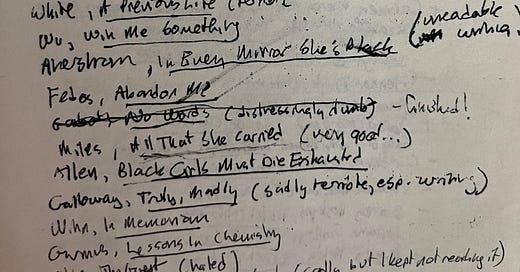 White, A Previous Life
Wu, Win Me Something
Akerstrom, In Every Mirror She's Black (unreadable writing)
Febos, Abandon Me
No Words (distressingly dumb) - finished!
Miles, All That She Carried (very good...)
Allen, Black Girls Must Die Exhausted
Galloway, Truly, Madly (sadly terrible, esp. writing)
Winn, In Memoriam
Garmus, Lessons In Chemistry
The Guest (hated) but I kept not reading it)